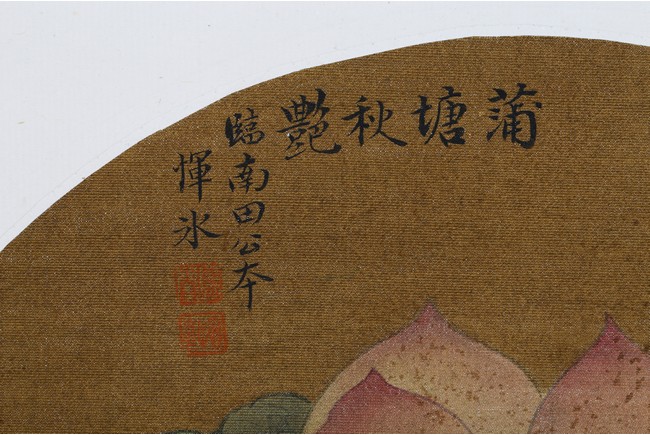 蒲塘秋艷
臨南田公本
惲冰